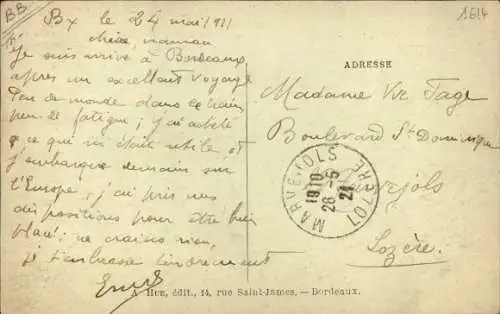 BB
1614
Bx le 24 mai 1921
chère maman
Je suis arrivé à Bordeaux
après un excellent voyage
Peu de monde dans le train
peu de fatigue ; j'ai acheté
ce qui m'était utile et
j'embarque demain sur
l'Europe, j'ai pris mes
dispositions pour être bien
placé ; ne crains rien,
Je t'embrasse tendrement
ADRESSE
Madame Vve Page
Boulevard St Dominique
Marvejols
Lozère
MARVEJOLS
1910
26 - 5
21
LOZERE
A Hue, édit., 14, rue Saint-James. — Bordeaux.